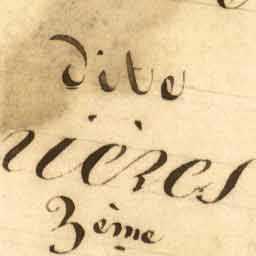 dite
nières
3ème